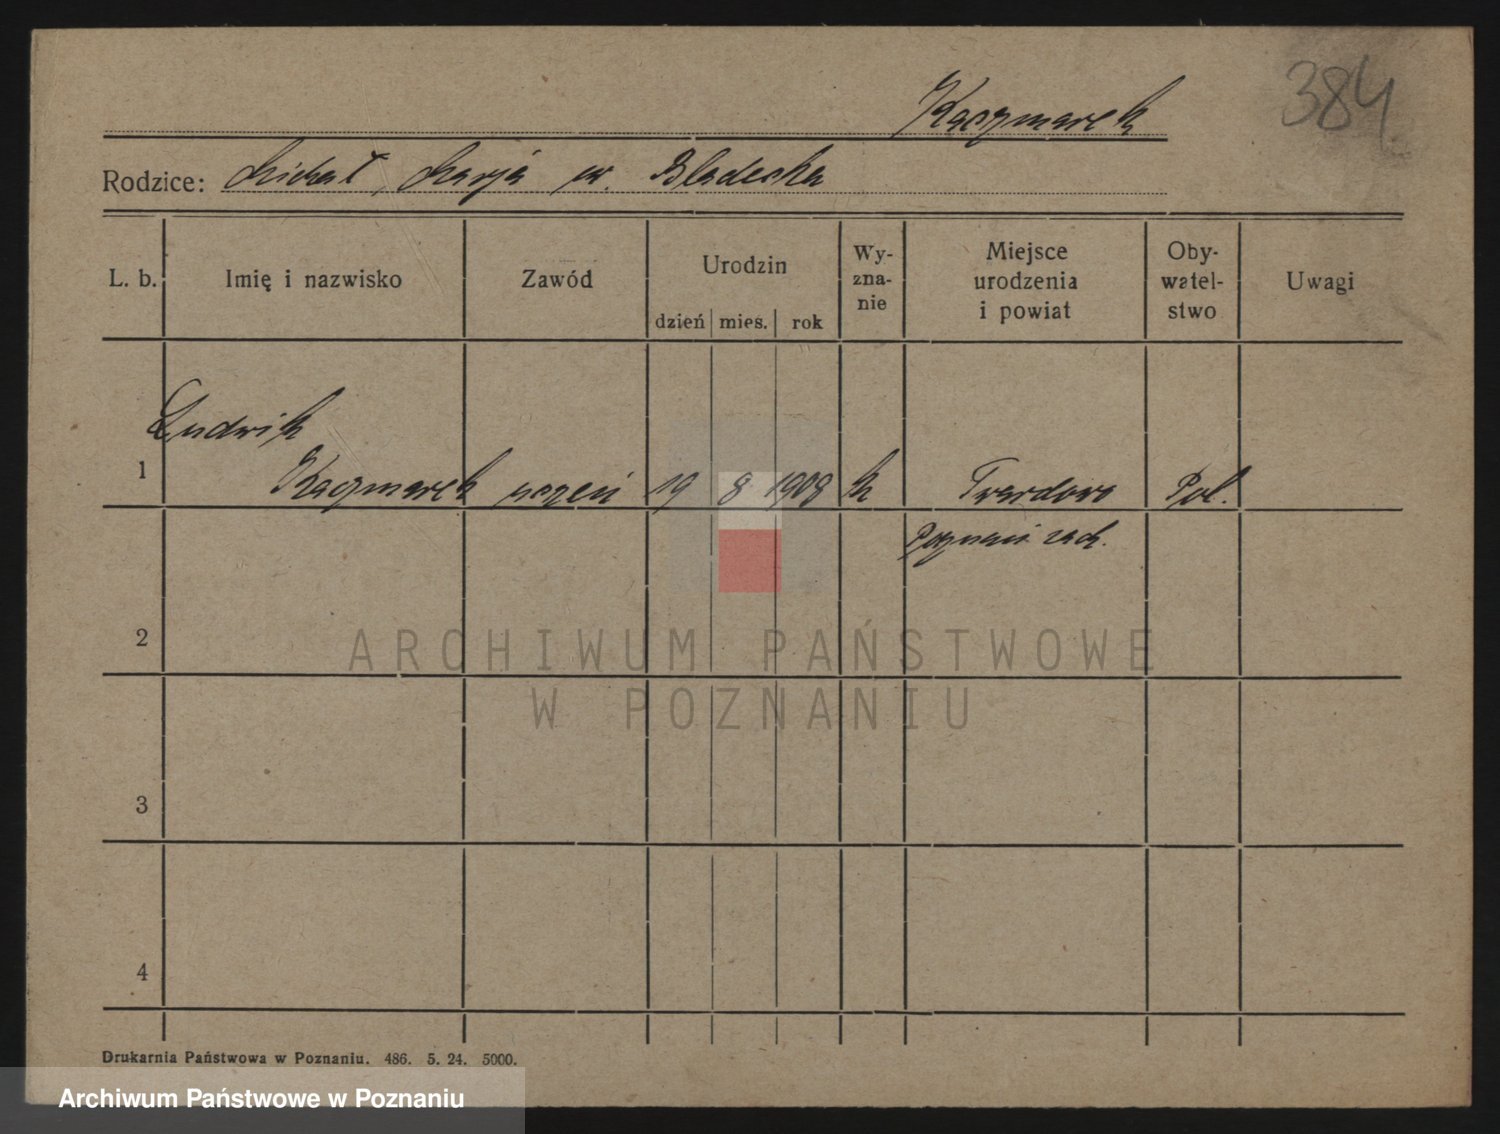 384
Kaczmarek
Rodzice: Michał, Marja ur. Bladecka
L. b. Imię i nazwisko Zawód Urodzin Wy-zna-nie Miejsce urodzenia i powiat Oby-watel-stwo Uwagi
dzień mies. rok
Ludwik
1 Kaczmarek uczeń 19 8 1908 k Twardowo Pol.
Poznań zach.
2
ARCHIWUM PAŃSTWOWE
W POZNANIU
3
4
Drukarnia Państwowa w Poznaniu. 486. 5. 24. 5000.
Archiwum Państwowe w Poznaniu